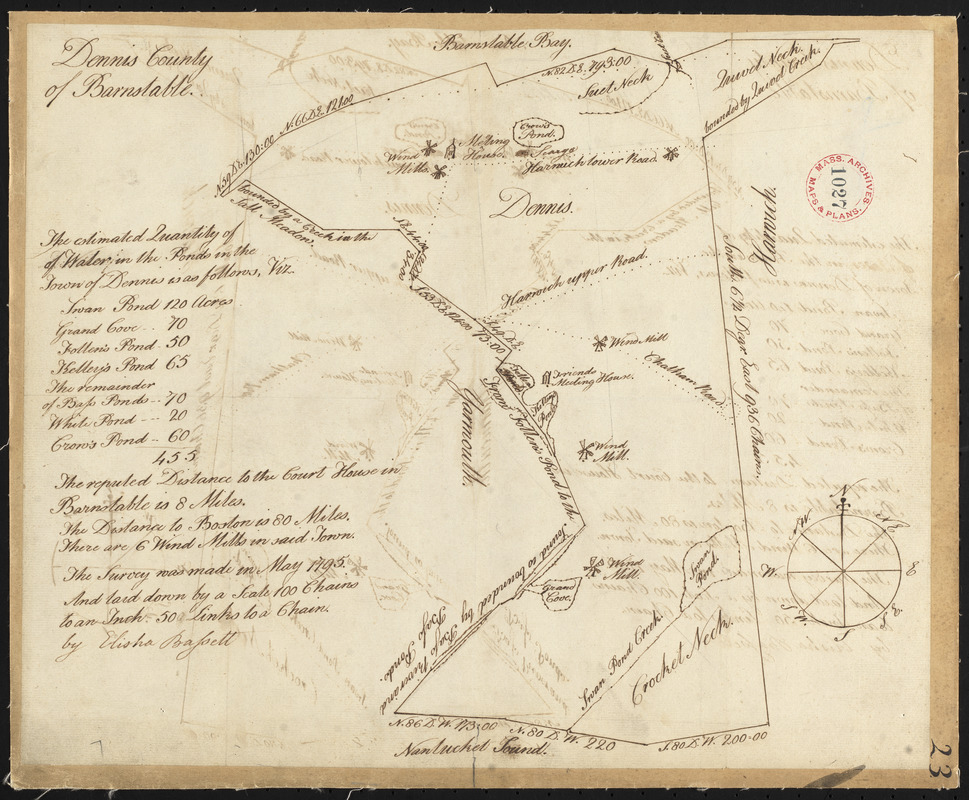 Dennis County
of Barnstable.
Barnstable Bay.
N. 82 D. E. 793:00
Suet Neck
Quivet Neck.
bounded by Quivet Creek.
N. 66 D. E. 121:00
N. 59 D. E. 130:00
Crow's
Pond.
Meeting
House.
Scargo
Wind
Mills.
Harwich lower Road.
MASS. ARCHIVES.
1027
MAPS & PLANS.
bounded by a Creek in the
Salt Meadow.
Dennis.
Harwich
South 6¾ Degr East 1936 Chains.
The estimated Quantity of
of Water, in the Ponds in the
Town of Dennis is as follows, Viz.
Swan Pond 120 Acres
Grand Cove --- 70
Follen's Pond 50
Kelley's Pond 65
The remainder
of Bass Ponds -- 70
White Pond --- 20
Crow's Pond -- 60
455
Harwich upper Road.
Wind Mill
Chatham Road.
75:00
Follens
Pond
Friends
Meeting House.
Kelleys
Pond
From Follen's Pond to th.
Sound is bounded by
Bass Ponds.
River and
Bass Ponds.
Yarmouth.
Wind
Mill.
The reputed Distance to the Court House in
Barnstable is 8 Miles.
The Distance to Boston is 80 Miles.
There are 6 Wind Mills in said Town.
The Survey was made in May 1795.
And laid down by a Scale 100 Chains
to an Inch. 50 Links to a Chain.
by Elisha Bassett
Wind
Mill.
Grand
Cove.
Swan
Pond.
Swan Pond Creek.
Crocket Neck.
N
NE
E
S.E
S
S.W
W.
N.W
N. 86 D. W. 173:00
N. 80 D. W. 220
S. 80 D. W. 200:00
Nantucket Sound.
23